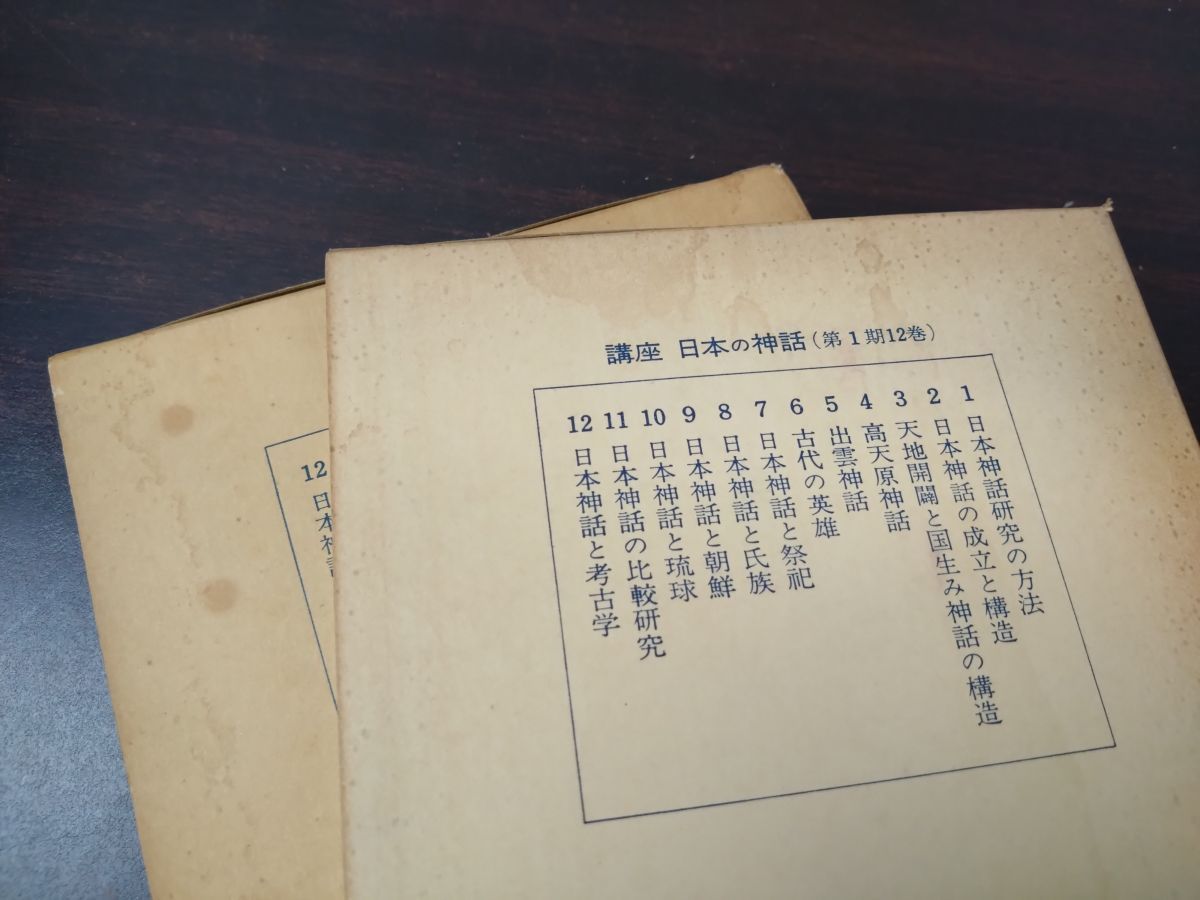 講座 日本の神話(第1期12巻)
1 日本神話研究の方法
2 日本神話の成立と構造
3 天地開闢と国生み神話の構造
4 高天原神話
5 出雲神話
6 古代の英雄
7 日本神話と祭祀
8 日本神話と氏族
9 日本神話と朝鮮
10 日本神話と琉球
11 日本神話の比較研究
12 日本神話と考古学
12 日本神話